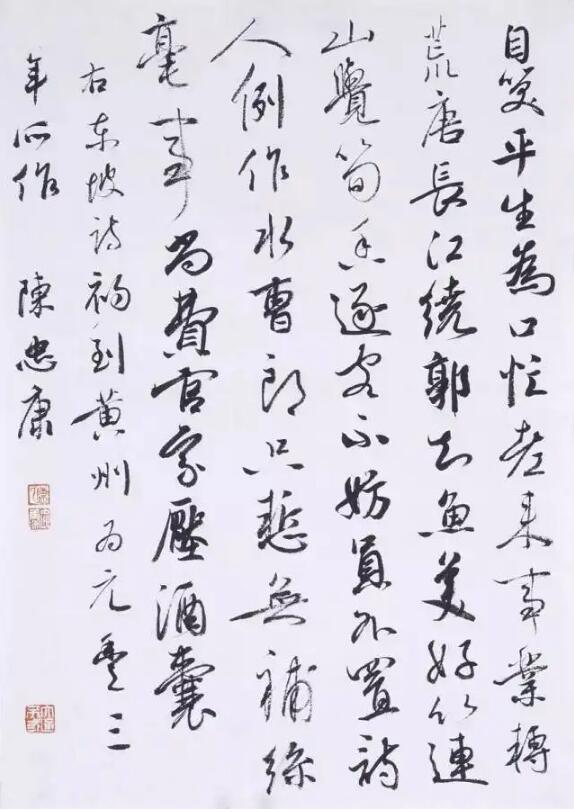 自笑平生為口忙老来事業轉
荒唐長江繞郭知魚美好竹連
山覺筍香逐客不妨員外置詩
人例作水曹郎只慙無補絲
毫事尚費官家壓酒囊
右东坡诗初到黄州为元豐三
年所作 陳忠康